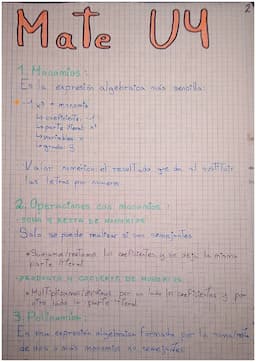 2
Mate U4
1. Monomios:
Es la expresión algebraica más sencilla:
-1 x³ → monomio
↳ coeficiente: -1
↳ parte literal: x³
↳ variables: x
↳ grado: 3
Valor numérico: el resultado que da al sustituir
las letras por números
2. Operaciones con monomios:
·SUMA Y RESTA DE MONOMIOS
Solo se puede realizar si son semejantes
• Sumamos/restamos los coeficientes y se deja la misma
parte literal
·PRODUCTO Y COCIENTE DE MONOMIOS
• Multiplicamos/dividimos por un lado los coeficientes y por
otro lado la parte literal
3. Polinomios:
Es una expresión algebraica formada por la suma/resta
de dos o más monomios no semejantes